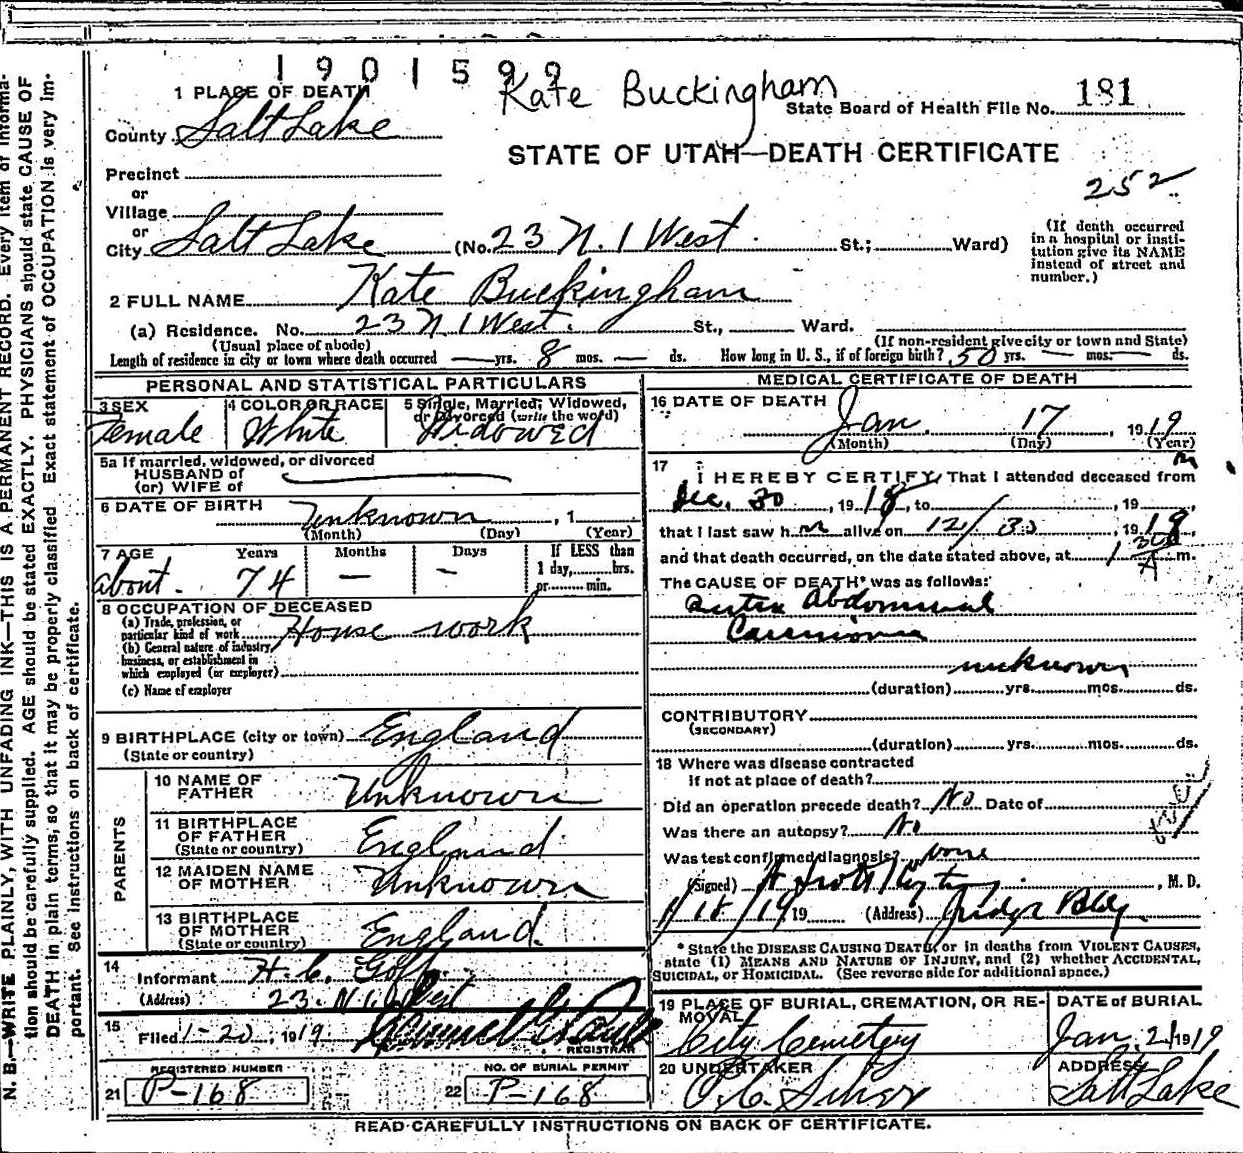 1901599
Kate Buckingham
State Board of Health File No. 181
STATE OF UTAH—DEATH CERTIFICATE
252
1 PLACE OF DEATH
County Salt Lake
Precinct
or
Village
or
City Salt Lake (No. 23 N. 1 West. St.; Ward)
(If death occurred in a hospital or insti-
tution give its NAME
instead of street and
number.)
2 FULL NAME Kate Buckingham
(a) Residence. No. 23 N 1 West. St., Ward.
(Usual place of abode) (If non-resident give city or town and State)
Length of residence in city or town where death occurred — yrs. 8 mos. — ds. How long in U. S., if of foreign birth? 50 yrs. — mos. — ds.
PERSONAL AND STATISTICAL PARTICULARS
3 SEX Female
4 COLOR OR RACE White
5 Single, Married, Widowed,
or Divorced (write the word) Widowed
5a If married, widowed, or divorced
HUSBAND of
(or) WIFE of
6 DATE OF BIRTH Unknown, 1
(Month) (Day) (Year)
7 AGE Years Months Days If LESS than
about. 74 — — 1 day, hrs.
or min.
8 OCCUPATION OF DECEASED
(a) Trade, profession, or
particular kind of work House work
(b) General nature of industry,
business, or establishment in
which employed (or employer)
(c) Name of employer
9 BIRTHPLACE (city or town) England
(State or country)
PARENTS
10 NAME OF
FATHER Unknown
11 BIRTHPLACE
OF FATHER
(State or country) England
12 MAIDEN NAME
OF MOTHER Unknown
13 BIRTHPLACE
OF MOTHER
(State or country) England.
14
Informant H. C. Goff
(Address) 23. N 1 West
15
Filed 1-20, 1919.
REGISTRAR
REGISTERED NUMBER
21 P-168
NO. OF BURIAL PERMIT
22 P-168
MEDICAL CERTIFICATE OF DEATH
16 DATE OF DEATH
Jan. 17, 1919
(Month) (Day) (Year)
17
I HEREBY CERTIFY, That I attended deceased from
Dec. 30, 1918, to , 19
that I last saw h alive on 12/30, 1918,
and that death occurred, on the date stated above, at 1 30 A m.
The CAUSE OF DEATH* was as follows:
Abdominal
unknown
(duration) yrs. mos. ds.
CONTRIBUTORY
(SECONDARY)
(duration) yrs. mos. ds.
18 Where was disease contracted
if not at place of death?
Did an operation precede death? No Date of
Was there an autopsy? No
Was test confirmed diagnosis? None
(Signed) , M. D.
1/18/1919 (Address) Judge Bldg.
* State the DISEASE CAUSING DEATH, or in deaths from VIOLENT CAUSES,
state (1) MEANS AND NATURE OF INJURY, and (2) whether ACCIDENTAL,
SUICIDAL, or HOMICIDAL. (See reverse side for additional space.)
19 PLACE OF BURIAL, CREMATION, OR RE-
MOVAL
City Cemetery
DATE of BURIAL
Jan, 21 1919
20 UNDERTAKER
ADDRESS
Salt Lake
READ CAREFULLY INSTRUCTIONS ON BACK OF CERTIFICATE.
N. B.—WRITE PLAINLY, WITH UNFADING INK—THIS IS A PERMANENT RECORD. Every item of informa-
tion should be carefully supplied. AGE should be stated EXACTLY. PHYSICIANS should state CAUSE OF
DEATH in plain terms, so that it may be properly classified. Exact statement of OCCUPATION is very im-
portant. See instructions on back of certificate.